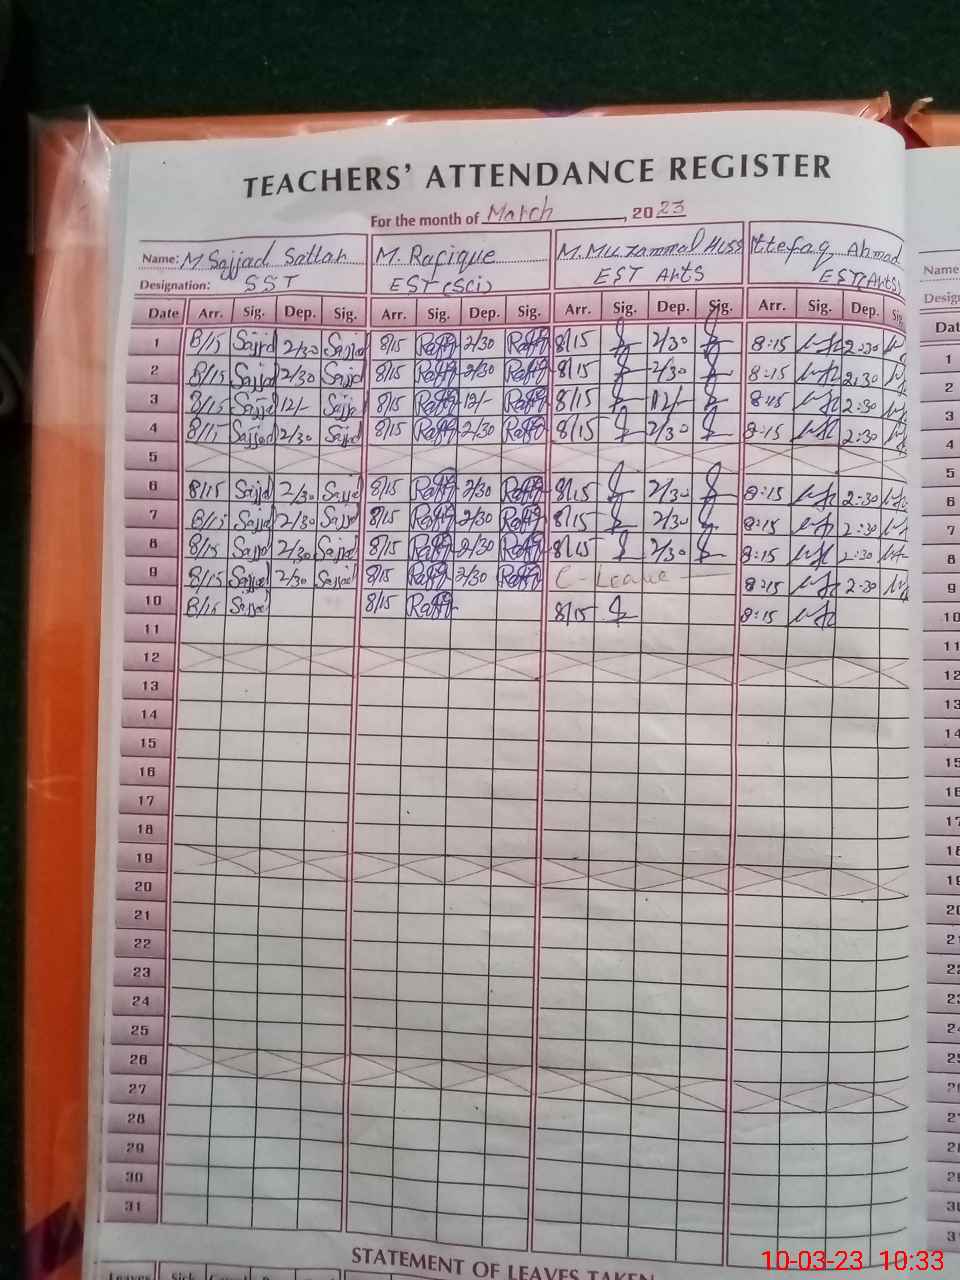 TEACHERS' ATTENDANCE REGISTER
For the month of March, 2023
Name: M Sajjad Sattar M. Rafique M. Muzammal Huss Ittefaq Ahmad
Designation: SST EST (Sci) EST Arts EST (Arts)
Date Arr. Sig. Dep. Sig. Arr. Sig. Dep. Sig. Arr. Sig. Dep. Sig. Arr. Sig. Dep. Sig.
1 8/15 Sajjad 2/30 Sajjad 8/15 Rafiq 2/30 Rafiq 8/15 2/30 8:15 2:30
2 8/15 Sajjad 2/30 Sajjad 8/15 Rafiq 2/30 Rafiq 8/15 2/30 8:15 2:30
3 8/15 Sajjad 12/- Sajjad 8/15 Rafiq 12/- Rafiq 8/15 12/- 8:15 2:30
4 8/15 Sajjad 2/30 Sajjad 8/15 Rafiq 2/30 Rafiq 8/15 2/30 8:15 2:30
5
6 8/15 Sajjad 2/30 Sajjad 8/15 Rafiq 2/30 Rafiq 8/15 2/30 8:15 2:30
7 8/15 Sajjad 2/30 Sajjad 8/15 Rafiq 2/30 Rafiq 8/15 2/30 8:15 2:30
8 8/15 Sajjad 2/30 Sajjad 8/15 Rafiq 2/30 Rafiq 8/15 2/30 8:15 2:30
9 8/15 Sajjad 2/30 Sajjad 8/15 Rafiq 2/30 Rafiq C-Leave 8:15 2:30
10 8/15 Sajjad 8/15 Rafiq 8/15 8:15
11
12
13
14
15
16
17
18
19
20
21
22
23
24
25
26
27
28
29
30
31
STATEMENT OF LEAVES TAKEN
Leaves Sick
Name
Desig
Dat
1
2
3
4
5
6
7
8
9
10
11
12
13
14
15
16
17
18
19
20
21
22
23
24
25
26
27
28
29
30
10-03-23 10:33